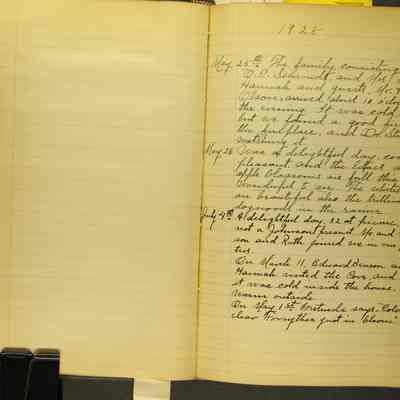 1925
May 25th The family consisting
D.D. Schmidt and Mrs
Hannah and guests, Mr.
Olson, arrived about 10 o'clock
the evening. It was cold
but we found a good fire
the fireplace, and Dd.
watching it.
May 26 Was a delightful day,
pleasant and the lilacs
apple blossoms are full
Wonderful to see. The white
are beautiful also the trillium
dogwood in the ravine
July 4th A delightful day, 22 at picnic
not a Johnson present. Mr. and
son and Ruth joined us in our
ties.
On March 11, Edward Benson
Hannah visited the Cove and
it was cold inside the house.
Warm outside
On May 1st Gertrude says: "Cold
clear Forsythia just in bloom"